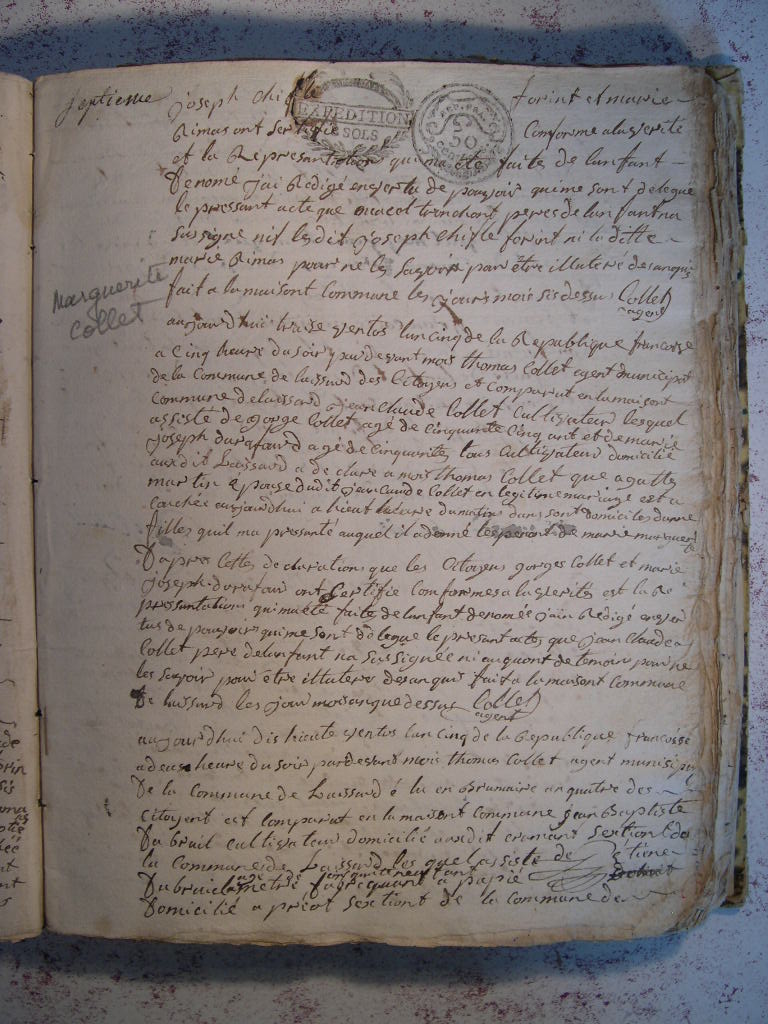 septieme
joseph chifle forint et marie
Rimas ont sertifie Conforme a la verite
EXPEDITION
SOLS
REP. FRA.
50
et la Represantation qui ma été faite de lanfant
Denomé j'ai Redigé en vertu de pouvoir qui me sont delegué
le pressant acte que marcel tranchant peres de lanfant na
sus signe ni le dit joseph chifle forint ni la ditte
marie Rimas pour ne les savoir pour être illuteré de sanquis
fait a la maisont Commune les jours mois sis dessus Collet
agent
Marguerite
Collet
aujourd'huit traise ventos lan cinq de la Republique francoise
a Cinq heure du soir par devant mois thomas Collet agent municipal
de la Commune de laussard des Citoyens et Comparut en la maisont
Commune de laussard jean Claude Collet Cultivateur lesquel
assisté de gorge Collet agé de Cinquante Cinq ant et de marie
joseph durafourd agé de Cinquante, tous Cultivateur domicilié
audit Laussard a declaré a mois thomas Collet que agatte
martin epouse dudit jean Claude Collet en legitime mariage est a
Couchée aujourd'hui a hieut heure du matin dans sont domicile dunne
filles quil ma pressanté auquel il a donné les prenont de marie marguerite
D'apres Cettes declaration que les Citoyens gorges Collet et marie
joseph durafour ont Certifie Conformes a la verités est la Re
pressantation qui ma été faite de lanfant denomée j'ai Redigé en ver
tus de pouvoir qui me sont delegue le presant actes que jean Claude
Collet pere de lanfant na sussignée ni auquont de temoin pour ne
les savoir pour être illuteres de sanquis fait a la maisont Commune
De laussard les jour mois anque dessus Collet
agent
aujourd'hui dis hieute ventos lan cinq de la Republique francoise
a deux heure du soir pardevant mois thomas Collet agent munisipal
De la Commune de Laussard é lu en brumaire an quatre des
Citoyent est Comparut en la maisont Commune jean Baptiste
Dubruil cultivateur domicilié audit cramant section de
la Commune de Laussard les quel assisté de étiene
Dubruil
Domicilié a préot sextiont de la Commune de